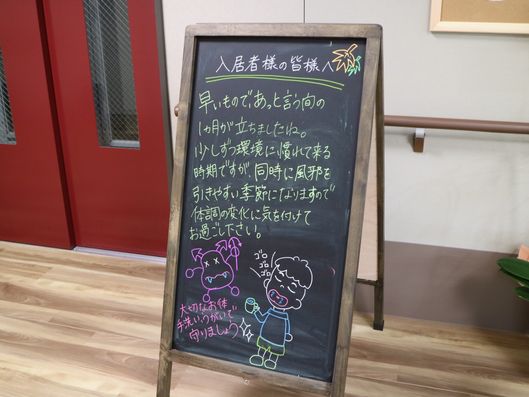 入居者様の皆様へ
早いもので、あっと言う間の
1ヵ月が立ちましたね。
少しずつ環境に慣れて来る
時期ですが、同時に風邪を
引きやすい季節になりますので
体調の変化に気を付けて
お過ごし下さい。
ゴロ
ゴロ
ゴロ
大切なお体
手洗い、うがいで
守りましょう